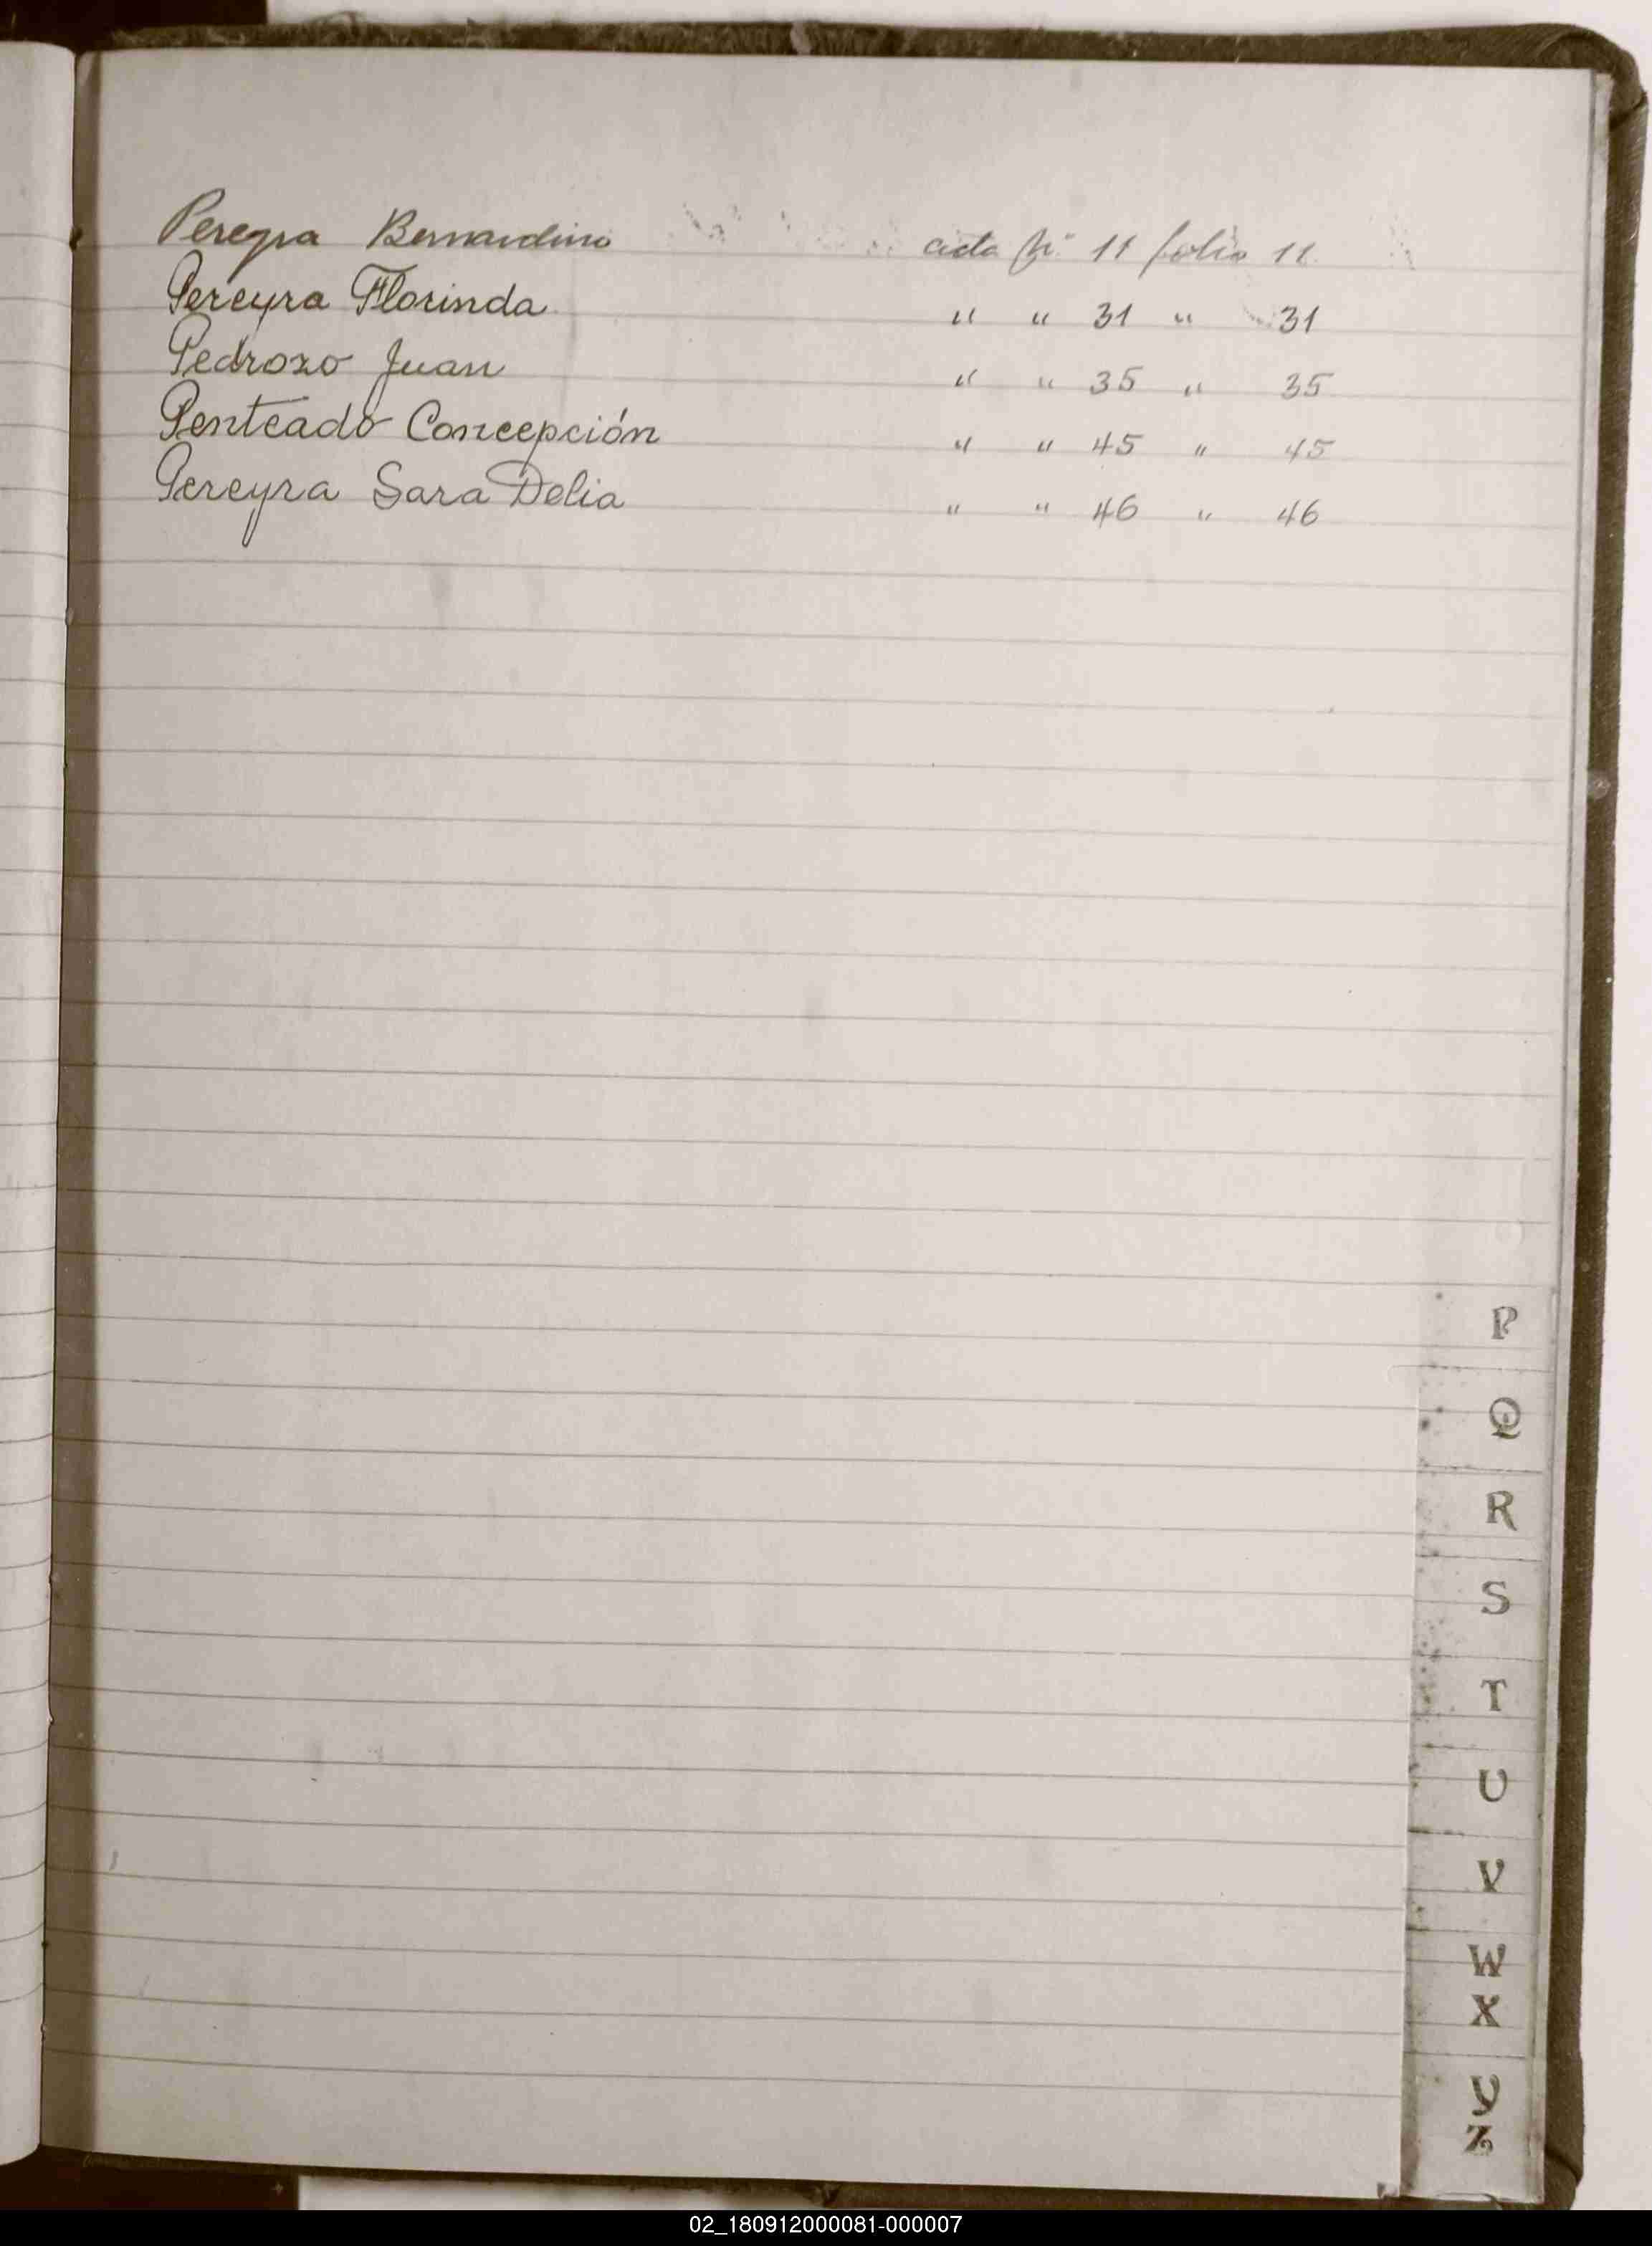 Pereyra Bernardino acta Nº 11 folio 11
Pereyra Florinda " " 31 " 31
Pedrozo Juan " " 35 " 35
Penteado Concepción " " 45 " 45
Pereyra Sara Delia " " 46 " 46
P
Q
R
S
T
U
V
W
X
Y
Z
02_180912000081-000007